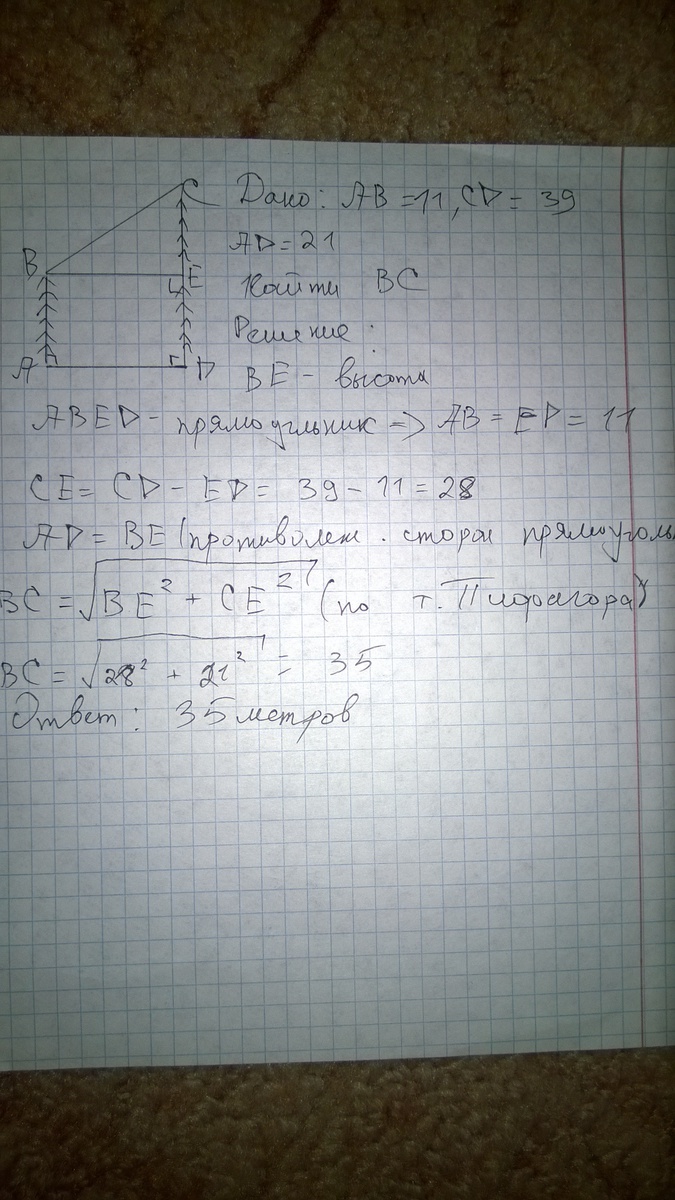 C
B
E
A
D
Дано: AB = 11, CD = 39
AD = 21
Найти BC
Решение:
BE - высота
ABED - прямоугольник => AB = ED = 11
CE = CD - ED = 39 - 11 = 28
AD = BE (противолеж. сторон прямоуголь
BC = √BE² + CE² (по т. Пифагора)
BC = √28² + 21² = 35
Ответ: 35 метров